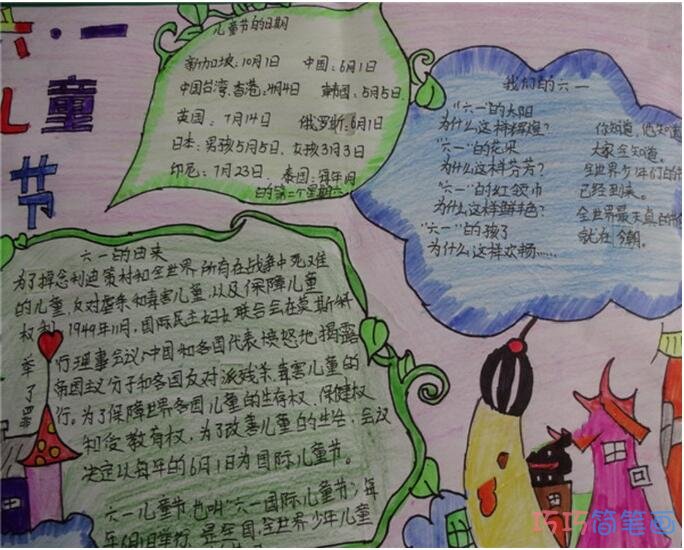 六·一
儿童
节
儿童节的日期
新加坡:10月1日 中国:6月1日
中国台湾、香港:4月4日 韩国:5月5日
英国:7月14日 俄罗斯:6月1日
日本:男孩5月5日,女孩3月3日
印尼:7月23日. 泰国:每年一月
的第二个星期六
我们的六一
"六一"的太阳
为什么这样辉煌? 你知道,他知道
"六一"的花朵 大家全知道.
为什么这样芬芳? 全世界少年们的节
"六一"的红领巾 已经到来。
为什么这样鲜艳? 全世界最天真的节
"六一"的孩子 就在今朝。
为什么这样欢畅……
六一的由来
为了悼念利迪策村和全世界所有在战争中死难
的儿童,反对虐杀和毒害儿童,以及保障儿童
权利,1949年11月,国际民主妇女联合会在莫斯科
举行理事会议,中国和各国代表愤怒地揭露
了帝国主义分子和各国反对派残杀、毒害儿童的
罪行。为了保障世界各国儿童的生存权、保健权
和受教育权,为了改善儿童的生活,会议
决定以每年的6月1日为国际儿童节。
六一儿童节,也叫"六一国际儿童节",每
年6月1日举行,是全国,全世界少年儿童
巧巧简笔画